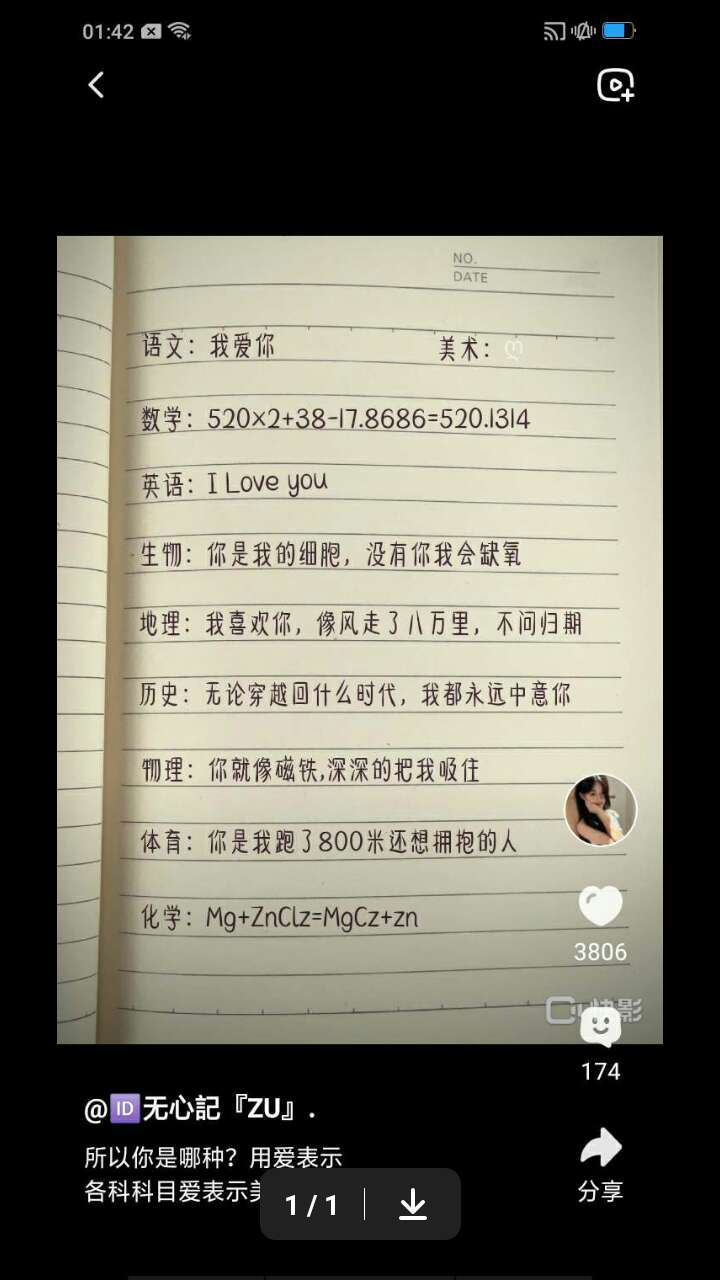 01:42
NO.
DATE
语文：我爱你 美术：ღ
数学：520×2+38-17.8686=520.1314
英语：I Love you
生物：你是我的细胞，没有你我会缺氧
地理：我喜欢你，像风走了八万里，不问归期
历史：无论穿越回什么时代，我都永远中意你
物理：你就像磁铁,深深的把我吸住
体育：你是我跑了800米还想拥抱的人
化学：Mg+ZnClz=MgCz+zn
3806
快影
174
@🆔无心記『ZU』.
所以你是哪种？用爱表示
各科科目爱表示
1/1
分享